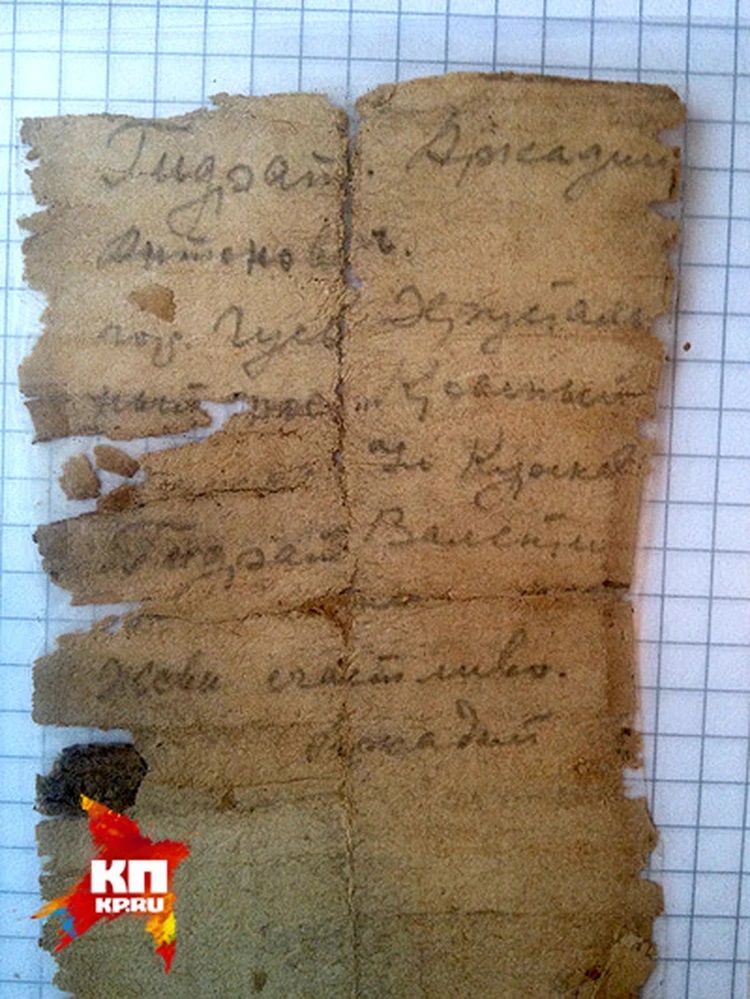 Гидрат. Аркадий
Антонович.
гор. Гусь Хрусталь
ный пос. „Красный
Ул Курлов
Гидрат Валенти
Живи счастливо.
Аркадий
КП
KP.RU